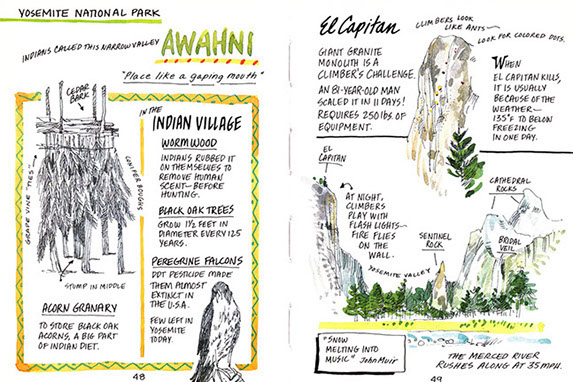 YOSEMITE NATIONAL PARK
INDIANS CALLED THIS NARROW VALLEY
AWAHNI
"Place like a gaping mouth"
CEDAR
BARK
GRAPE VINE "TIES"
CONIFER BOUGHS
STUMP IN MIDDLE
ACORN GRANARY
TO STORE BLACK OAK
ACORNS, A BIG PART
OF INDIAN DIET.
IN THE
INDIAN VILLAGE
WORMWOOD
INDIANS RUBBED IT
ON THEMSELVES TO
REMOVE HUMAN
SCENT—BEFORE
HUNTING.
BLACK OAK TREES
GROW 1½ FEET IN
DIAMETER EVERY 125
YEARS.
PEREGRINE FALCONS
DDT PESTICIDE MADE
THEM ALMOST
EXTINCT IN
THE U.S.A.
FEW LEFT IN
YOSEMITE
TODAY.
48
El Capitan
CLIMBERS LOOK
LIKE ANTS—
LOOK FOR COLORED DOTS.
GIANT GRANITE
MONOLITH IS A
CLIMBER'S CHALLENGE.
AN 81-YEAR-OLD MAN
SCALED IT IN 11 DAYS!
REQUIRES 250 lbs. OF
EQUIPMENT.
WHEN
EL CAPITAN KILLS,
IT IS USUALLY
BECAUSE OF THE
WEATHER—
135°F TO BELOW
FREEZING
IN ONE DAY.
EL
CAPITAN
AT NIGHT,
CLIMBERS
PLAY WITH
FLASH LIGHTS—
FIRE FLIES
ON THE
WALL.
CATHEDRAL
ROCKS
SENTINEL
ROCK
BRIDAL
VEIL
YOSEMITE VALLEY
"SNOW
MELTING INTO
MUSIC" John Muir
THE MERCED RIVER
RUSHES ALONG AT 35 MPH.
49